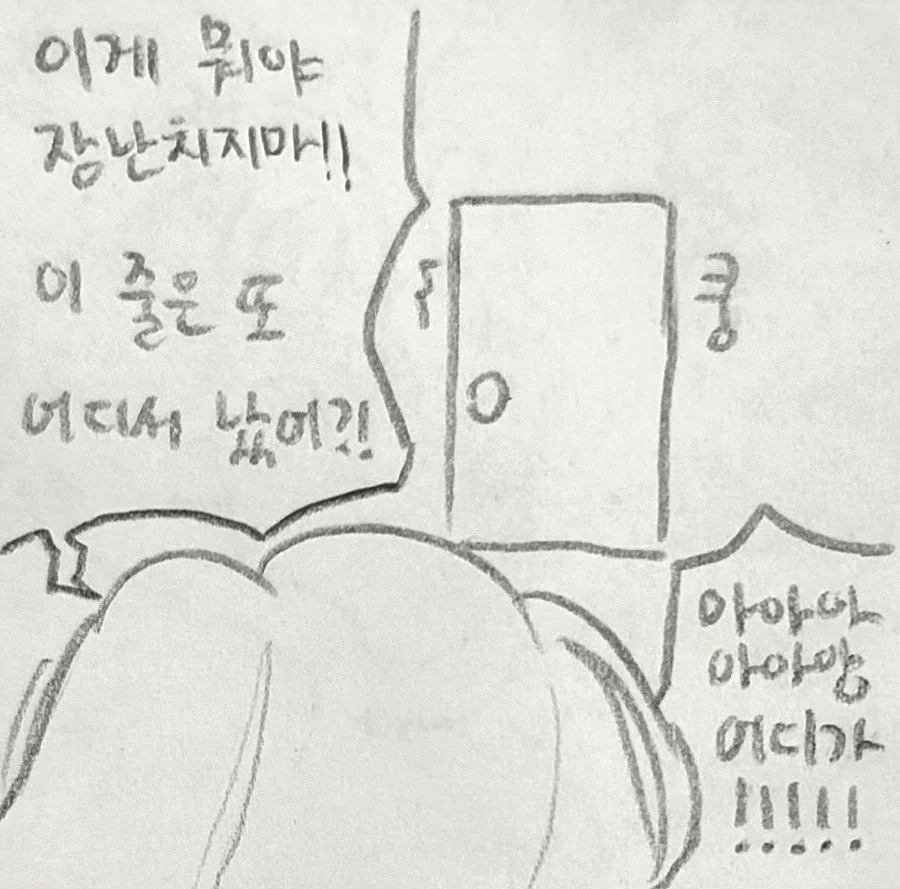 이게 뭐야
장난치지마!!
이 줄은 또
어디서 났어?!
쿵
아아아
아아앙
어디가
!!!!!